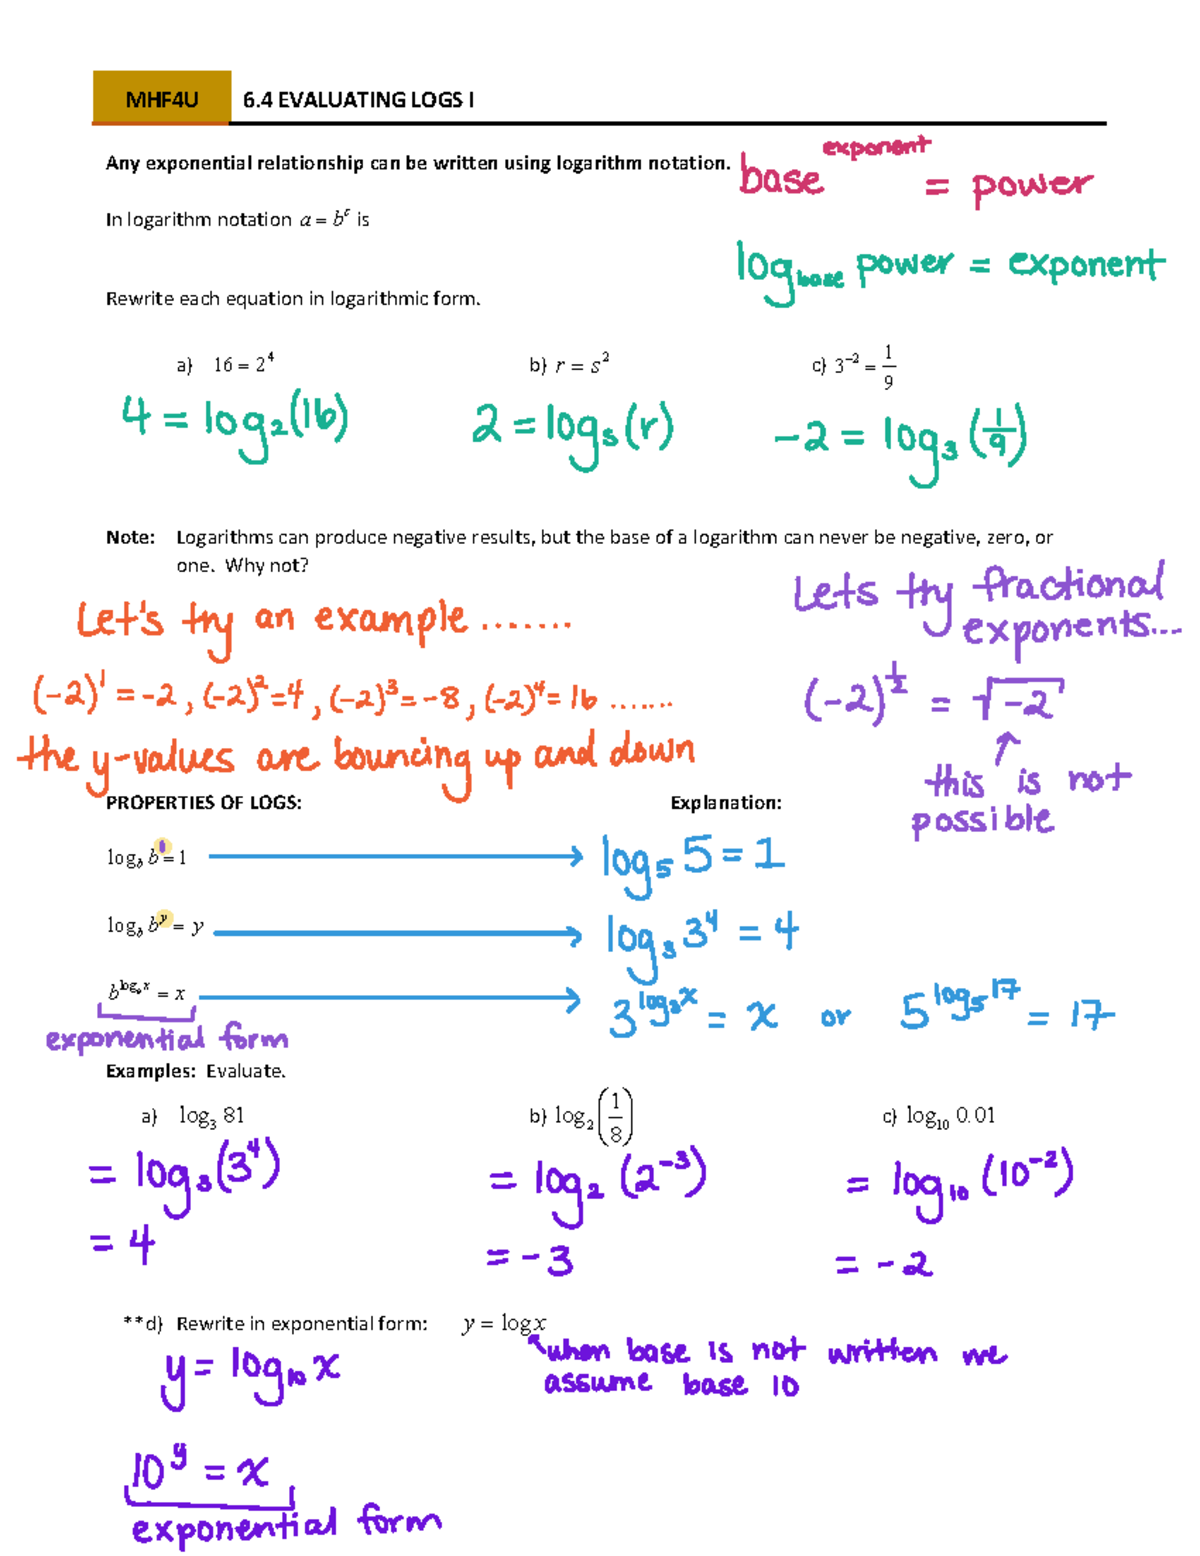 MHF4U 6.4 EVALUATING LOGS I
Any exponential relationship can be written using logarithm notation.
base^exponent = power
In logarithm notation a = b^c is
log_base power = exponent
Rewrite each equation in logarithmic form.
a) 16 = 2^4 b) r = s^2 c) 3^-2 = 1/9
4 = log_2(16) 2 = log_s(r) -2 = log_3(1/9)
Note: Logarithms can produce negative results, but the base of a logarithm can never be negative, zero, or
one. Why not?
Let's try an example .......
(-2)^1 = -2, (-2)^2 = 4, (-2)^3 = -8, (-2)^4 = 16 .......
the y-values are bouncing up and down
Lets try fractional
exponents...
(-2)^1/2 = √-2
this is not
possible
PROPERTIES OF LOGS: Explanation:
log_b b^1 = 1 log_5 5 = 1
log_b b^y = y log_3 3^4 = 4
b^log_b x = x 3^log_3 x = x or 5^log_5 17 = 17
exponential form
Examples: Evaluate.
a) log_3 81 b) log_2 (1/8) c) log_10 0.01
= log_3(3^4) = log_2 (2^-3) = log_10 (10^-2)
= 4 = -3 = -2
**d) Rewrite in exponential form: y = log x
when base is not written we
assume base 10
y = log_10 x
10^y = x
exponential form